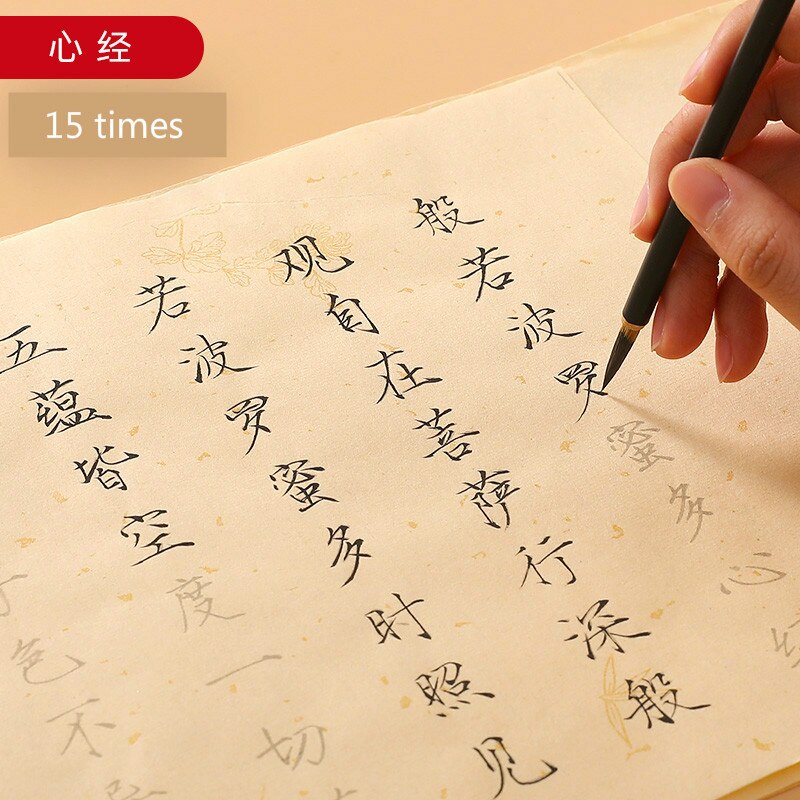 心经
15 times
般若波罗蜜多心经
观自在菩萨行深般
若波罗蜜多时照见
五蕴皆空度一切
色不